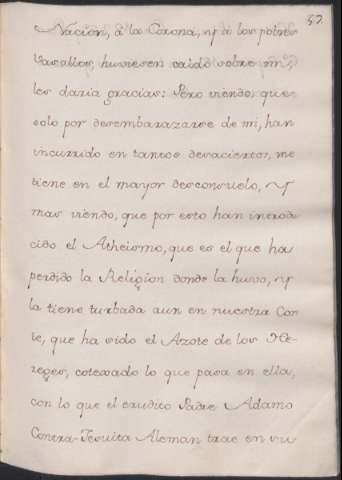 57.
Nacion, à la Corona, y à los pobres
Vasallos, huviesen caido sobre mi,
les daria gracias: Pero viendo, que
solo por desembarazarse de mi, han
incurrido en tantos desaciertos, me
tiene en el mayor desconsuelo, y
mas viendo, que por esto han introdu
cido el Atheismo, que es el que ha
perdido la Religion donde la huvo, y
la tiene turbada aun en nuestra Cor
te, que ha sido el Azote de los He-
reges, cotexado lo que pasa en ella,
con lo que el erudito Padre Adamo
Contra-Jesuita Aleman trae en su